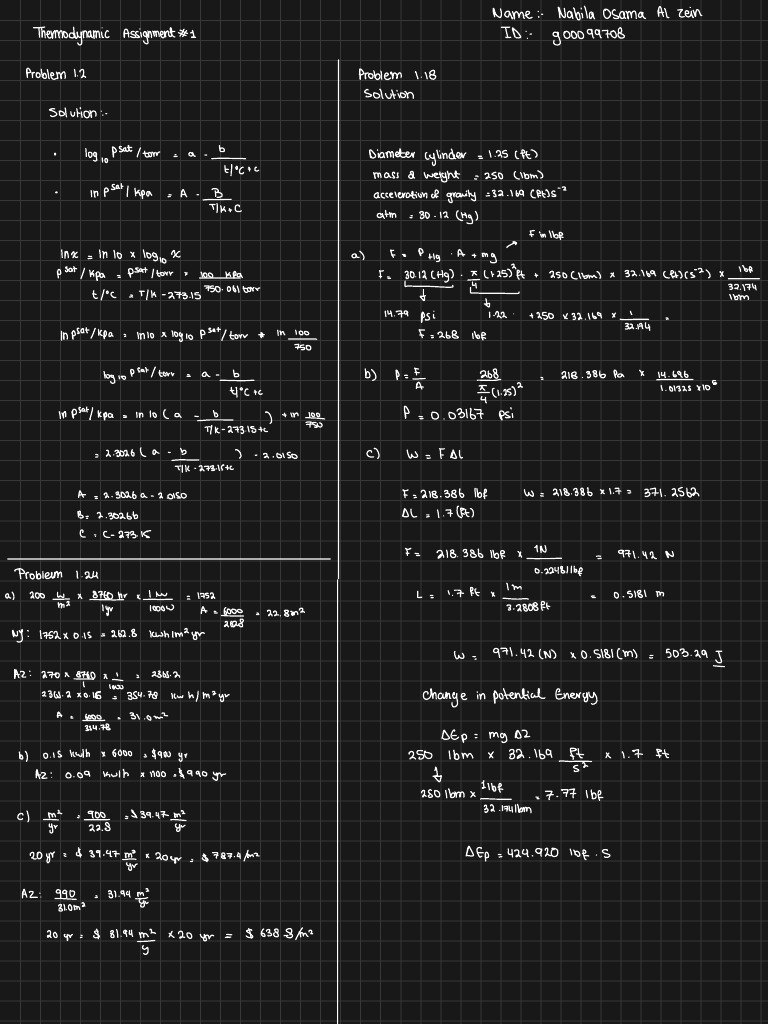 Name:- Nabila Osama Al zein
Thermodynamic Assignment #1
ID:- g00099708
Problem 1.2
Solution:-
• log₁₀ P^sat/torr = a - b / (t/°C + c)
• ln P^sat/kpa = A - B / (T/K + C)
lnx = ln 10 × log₁₀ x
P^sat/kpa = P^sat/torr × 100 kpa / 750.061 torr
t/°C = T/K - 273.15
ln P^sat/kpa = ln10 × log₁₀ P^sat/torr * ln 100/750
log₁₀ P^sat/torr = a - b / (t/°C + c)
ln P^sat/kpa = ln 10 ( a - b / (T/K - 273.15 + c) ) + ln 100/750
= 2.3026 ( a - b / (T/K - 273.15 + c) ) - 2.0150
A = 2.3026 a - 2.0150
B = 2.3026 b
C = C - 273.15
Problem 1.24
a) 200 W/m² × 8760 hr/1yr × 1 kw/1000W = 1752
A = 6000/262.8 = 22.8 m²
NJ: 1752 × 0.15 = 262.8 kwh/m² yr
AZ: 270 × 8760/1 × 1/1000 = 2365.2
2365.2 × 0.15 = 354.78 kw h/m² yr
A = 6000/354.78 = 31.0 m²
b) 0.15 kwh × 6000 = $900 yr
AZ: 0.09 kwh × 1100 = $990 yr
c) m²/yr = 900/22.8 = $39.47 m²/yr
20yr = $ 39.47 m²/yr × 20 yr = $ 787.4/m²
AZ: 990/31.0m² = 31.94 m²/yr
20 yr = $ 31.94 m²/y × 20 yr = $ 638.8/m²
Problem 1.18
Solution
Diameter cylinder = 1.25 (ft)
mass & weight = 250 (lbm)
acceleration of gravity = 32.169 (ft)s⁻²
atm = 30.12 (Hg)
F in lbf
a) F = P Hg . A + mg
F = 30.12 (Hg) . π/4 (1.25)² ft + 250 (lbm) × 32.169 (ft)(s⁻²) × lbf / 32.174 lbm
14.79 psi 1.22 + 250 × 32.169 × 1/32.174 =
F = 268 lbf
b) P = F/A 268 / π/4 (1.25)² = 218.386 Pa × 14.696 / 1.01325 × 10⁵
P = 0.03167 psi
C) W = F ΔL
F = 218.386 lbf W = 218.386 × 1.7 = 371.2562
ΔL = 1.7 (ft)
F = 218.386 lbf × 1N / 0.22481 lbf = 971.42 N
L = 1.7 ft × 1m / 3.2808 ft = 0.5181 m
W = 971.42 (N) × 0.5181 (m) = 503.29 J
Change in potential Energy
ΔEp = mg ΔZ
250 lbm × 32.169 ft/s² × 1.7 ft
250 lbm × 1 lbf / 32.174 lbm = 7.77 lbf
ΔEp = 424.920 lbf . S